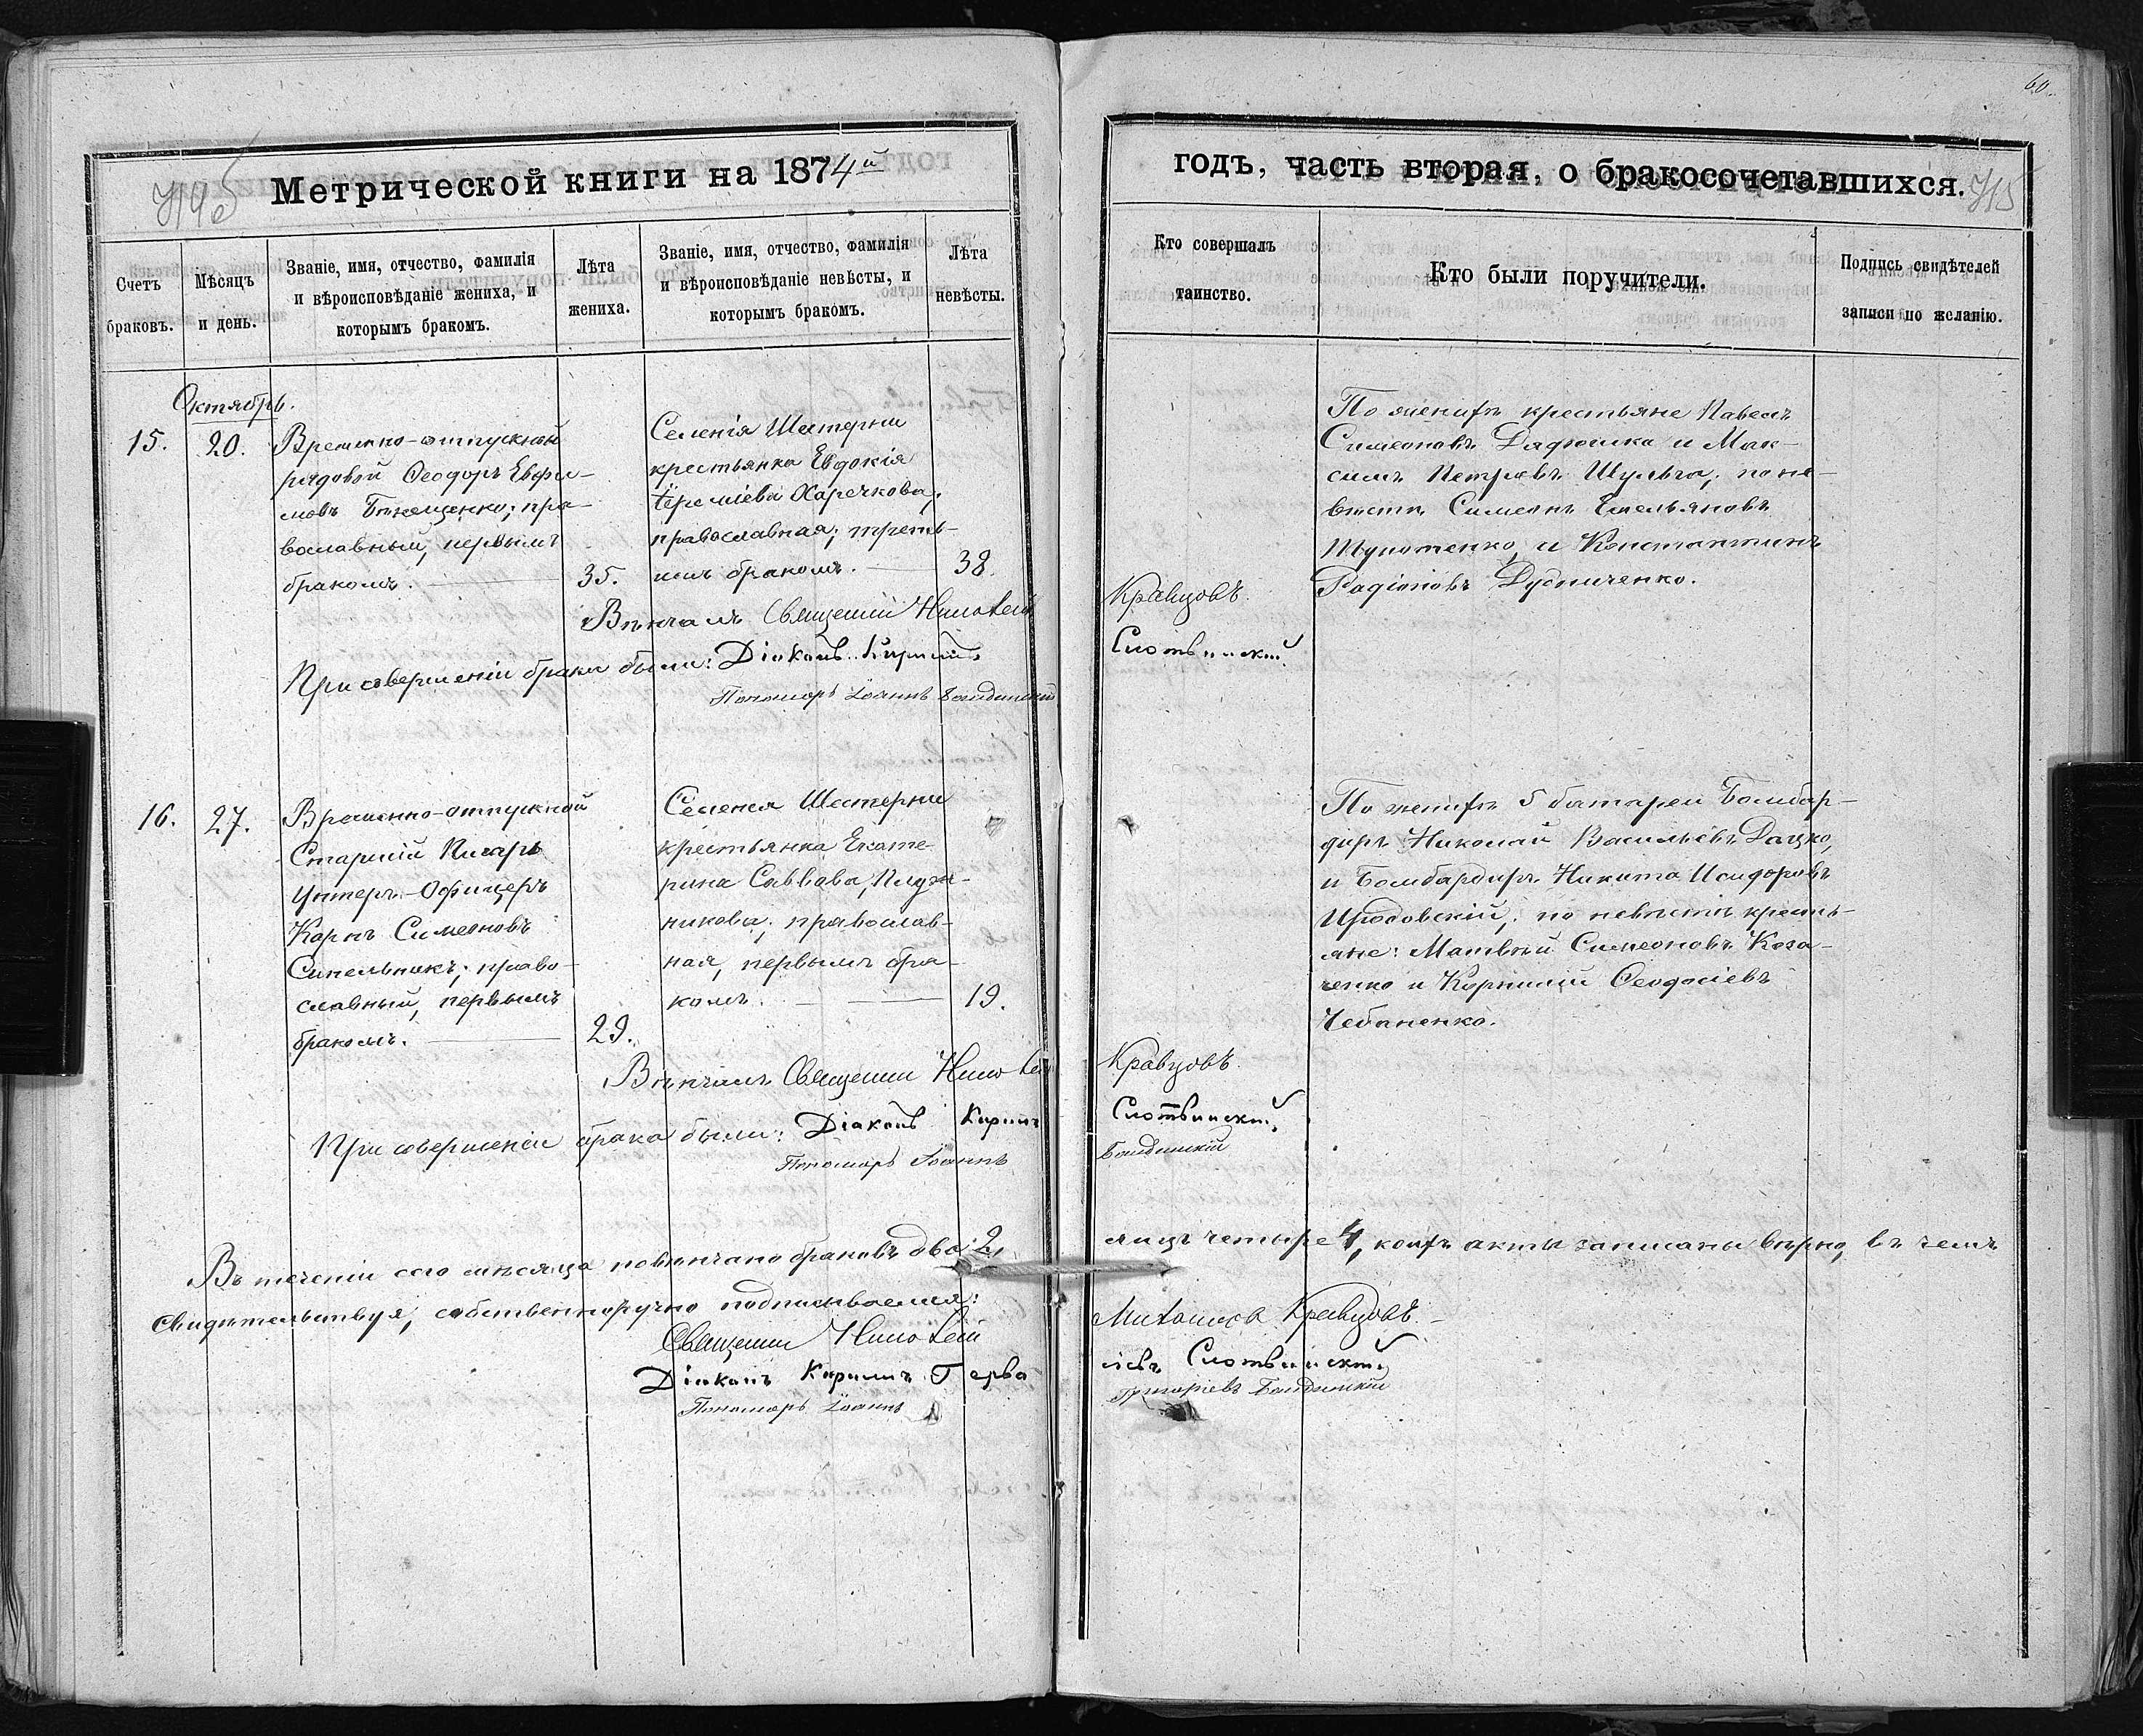 60.
714об
Метрической книги на 1874й
годъ, часть вторая, о бракосочетавшихся.
715
Счетъ браковъ.
Мѣсяцъ и день.
Званіе, имя, отчество, фамилія
и вѣроисповѣданіе жениха, и
которымъ бракомъ.
Лѣта
жениха.
Званіе, имя, отчество, фамилія
и вѣроисповѣданіе невѣсты, и
которымъ бракомъ.
Лѣта
невѣсты.
Кто совершалъ
таинство.
Кто были поручители.
Подпись свидѣтелей
записи по желанію.
Октябрь.
15.
20.
Временно-отпускной
рядовой Ѳеодоръ Евфи-
мовъ пра-
вославный, первымъ
бракомъ.
35.
Селенія Шестерни
крестьянка Евдокія
Іереміева Харечкова,
православная; треть-
имъ бракомъ.
38.
По женихѣ крестьяне Павелъ
Симеоновъ Дядюшка и Мак-
симъ Петровъ Шульга, по не-
вѣстѣ Симеонъ Емельяновъ
и Константинъ
Радіоновъ Дудниченко.
Вѣнчалъ Священникъ Кравцовъ.
При совершеніи брака были: Діаконъ Кириллъ Слотвинскій.
Пономарь Іоаннъ Бандинскій
16.
27.
Временно-отпускной
Старшій Писарь
Унтеръ-Офицеръ
Карпъ Симеоновъ
Синельникъ; право-
славный, первымъ
бракомъ.
29.
Селенія Шестерни
крестьянка Екате-
рина Саввова,
православ-
ная, первымъ бра-
комъ.
19.
По женихѣ 5 батареи Бомбар-
диръ Николай Васильевъ Дацко,
и Бомбардиръ Никита Исидоровъ
Иродовскій; по невѣстѣ кресть-
яне: Матвѣй Симеоновъ Коза-
ченко и Корнилій Ѳеодосіевъ
Чебаненко.
Вѣнчалъ Священникъ Кравцовъ.
При совершеніи брака были: Діаконъ Кириллъ Слотвинскій,
Пономарь Іоаннъ Бандинскій
Въ теченіи сего мѣсяца повѣнчано браковъ два 2, лицъ четыре 4, коихъ акты записаны вѣрно, въ чемъ
свидѣтельствуя, собственноручно подписываемся:
Священникъ Кравцовъ.
Діаконъ Кириллъ Слотвинскій
Пономарь Іоаннъ Григоріевъ Бандинскій